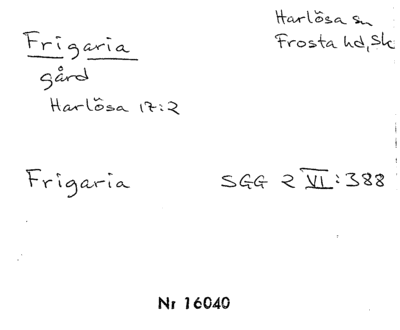 Harlösa sn
Frigaria
Frosta hd, Sk
gård
Harlösa 17:2
Frigaria SGG 2 VI:388
Nr 16040